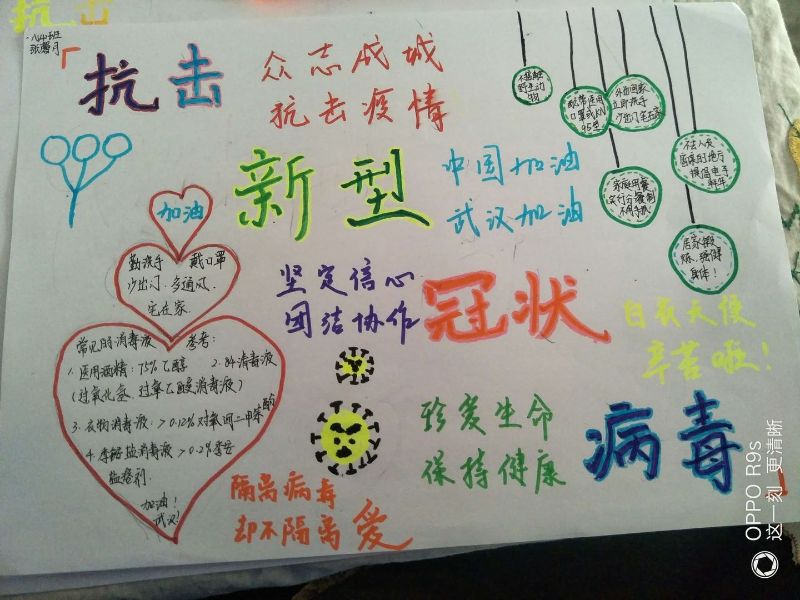 抗击
八(4)班
张馨月
抗击
众志成城
抗击疫情
新型
中国加油
武汉加油
不接触
野生动
物
外出回家
立即洗手
少出门
居家锻
炼,强健
身体!
加油
勤洗手 戴口罩
少出门,多通风,
宅在家.
坚定信心
团结协作
冠状
白衣天使
辛苦啦!
常见的消毒液 参考:
1.医用酒精:75%乙醇 2.84消毒液
(过氧化氢、过氧乙酸消毒液)
3.衣物消毒液:>0.12%对氯间二甲苯酚
4.季铵盐消毒液>0.2%季铵
盐溶剂.
加油!
武汉!
珍爱生命
保持健康
病毒
隔离病毒
却不隔离爱
OPPO R9s
这一刻 更清晰